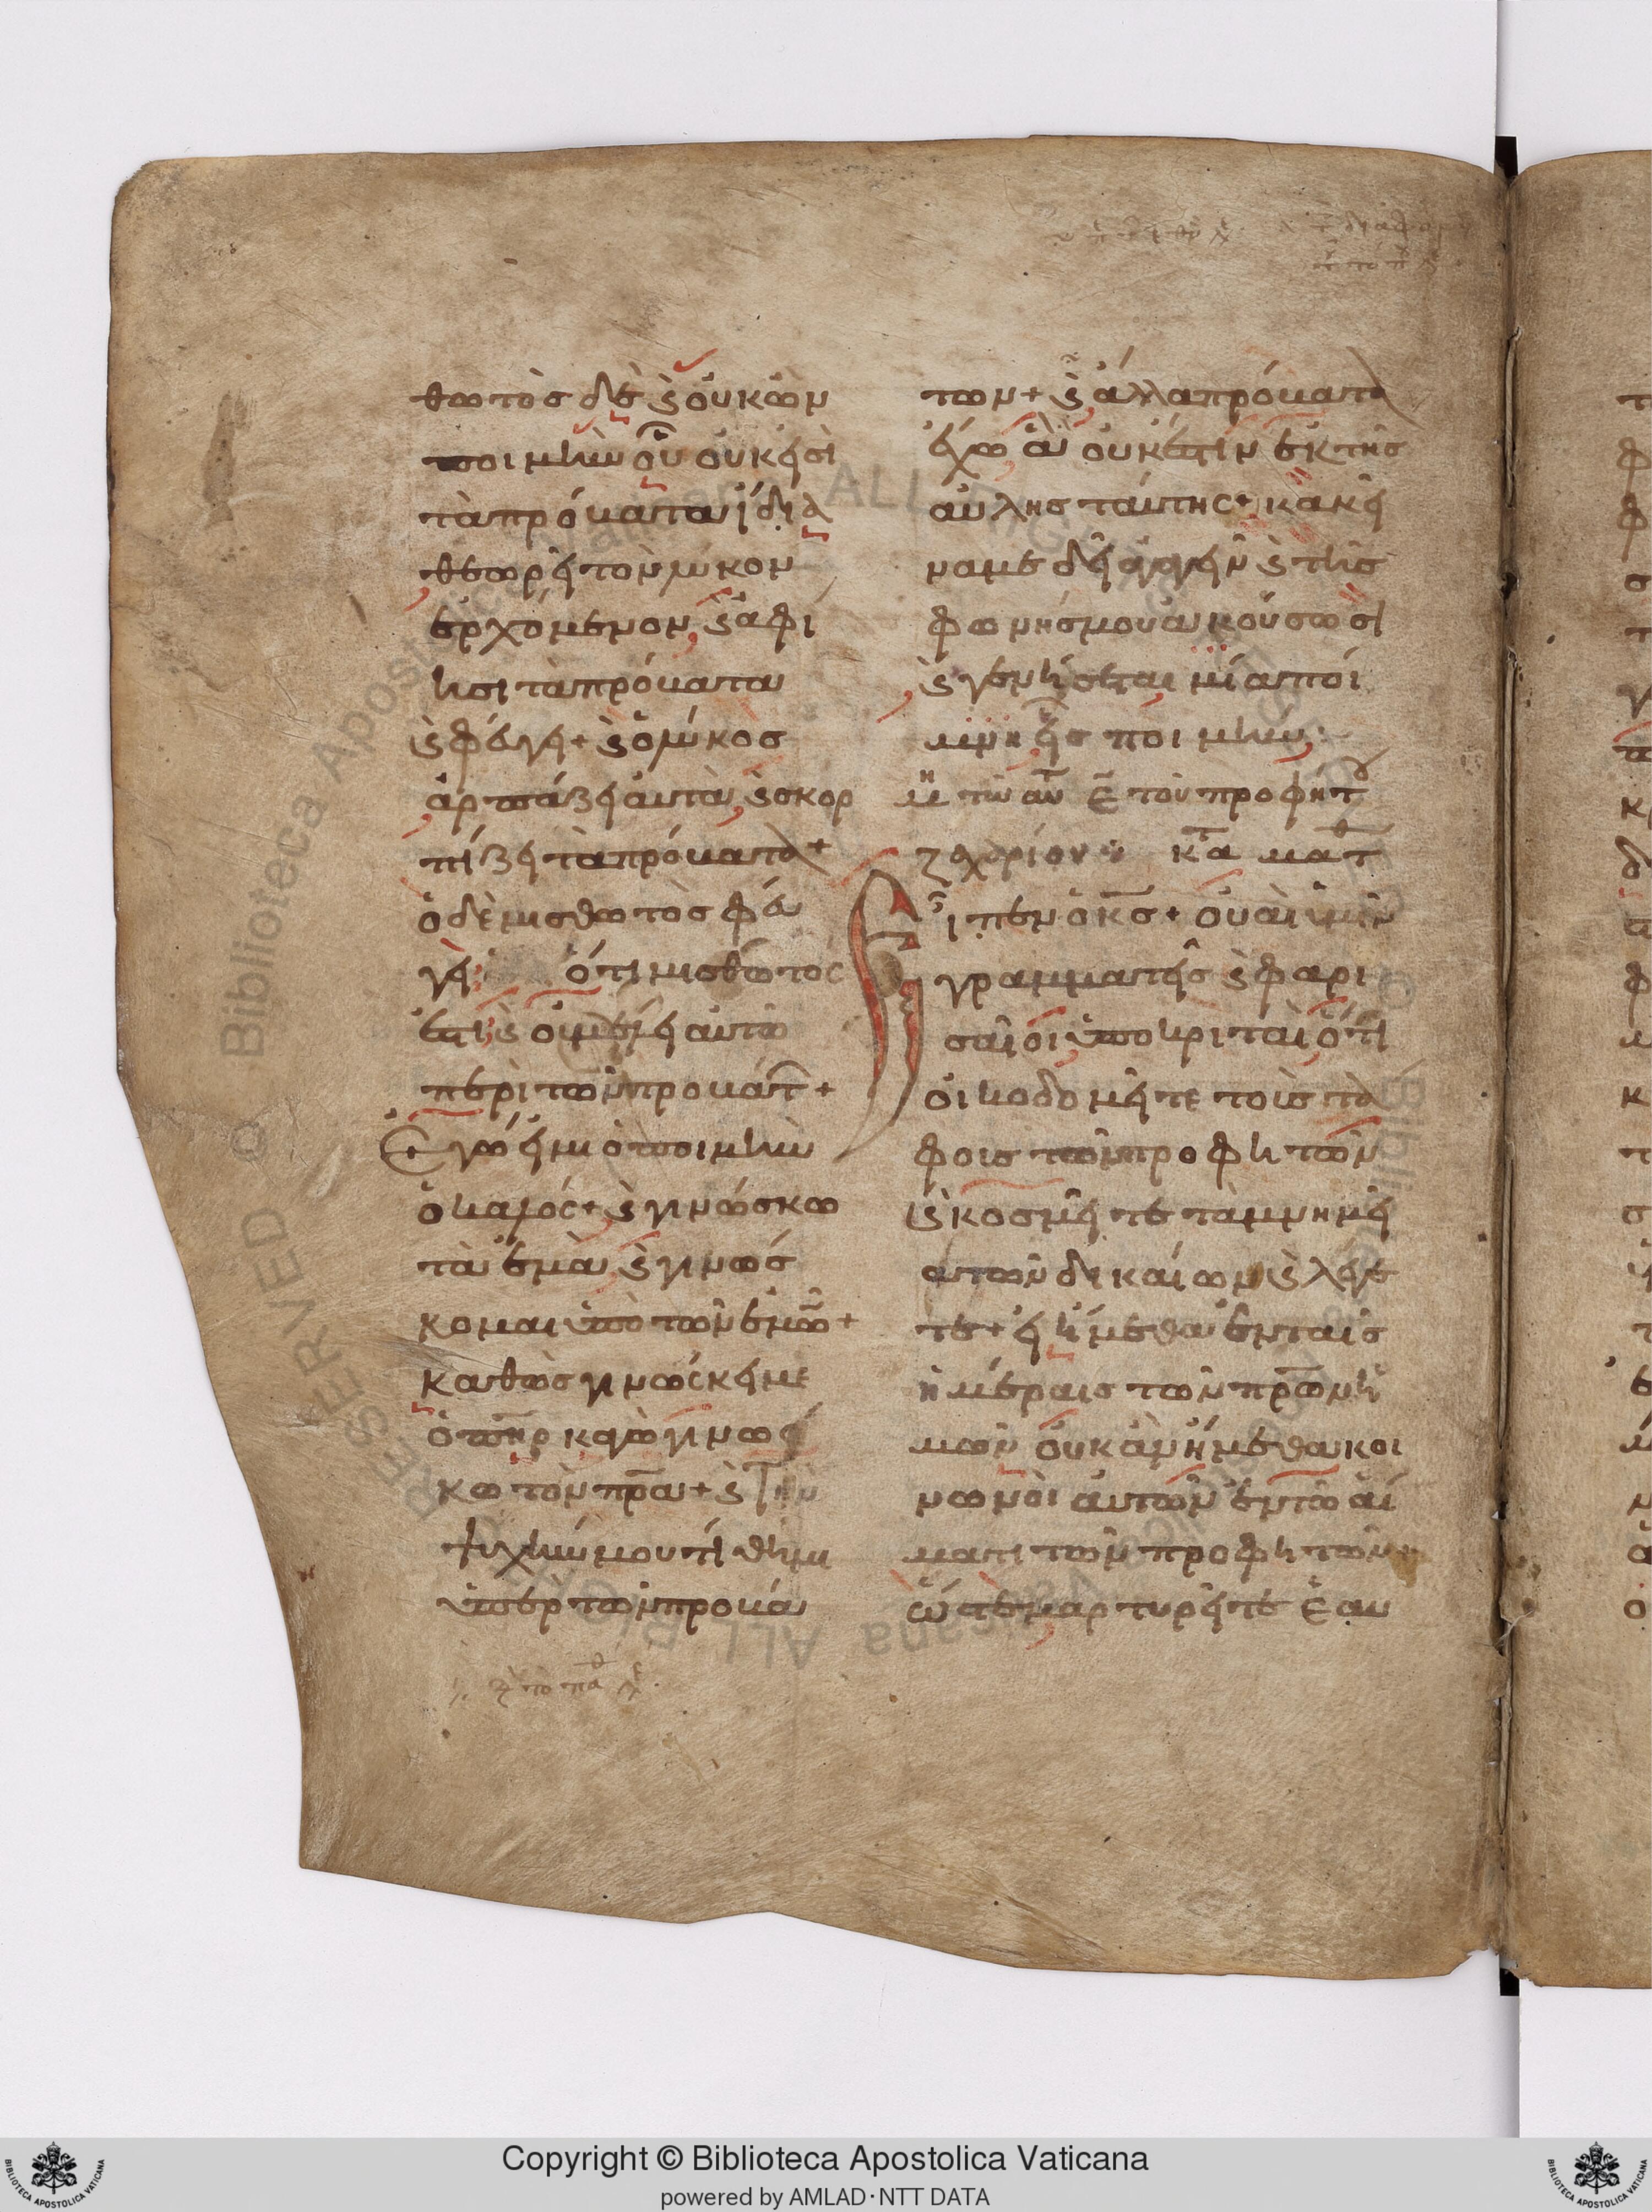 θωτὸσ δὲ ϗ οὐκ ὢν
ποιμὴν οὗ οὐκ ἐστὶ
τὰ πρόβατα ἴδια
θεωρεῖ τὸν λύκον
ἐρχόμενον, ϗ ἀφί
ησι τὰ πρόβατα
ϗ φεύγει + ϗ ὁ λύκοσ
ἁρπάζει αὐτὰ, ϗ σκορ
πίζει τὰ πρόβατα +
ὁ δὲ μισθωτὸσ φεύ
γει ὅτι μισθωτός
ἐστι, ϗ οὐ μέλει αὐτῶ
περὶ τῶν προβάτ +
Ἐγώ εἰμι ὁ ποιμὴν
ὁ καλός + ϗ γινώσκω
τὰ ἐμὰ, ϗ γινώσ
κομαι ὑπὸ τῶν ἐμῶν +
καθὼσ γινώσκει με
ὁ πηρ καγὼ γινώσ
κω τὸν πρα + ϗ τὴν
ψυχήν μου τίθημι
ὑπὲρ τῶν προβά
των + ϗ ἄλλα πρόβατα
ἔχω ἃ οὐκ ἔστιν ἐκ τῆσ
αὐλῆσ ταύτης + κἀκεῖ
να με δεῖ ἀγαγεῖν ϗ τῆσ
φωνῆσ μου ἀκούσωσι
ϗ γενήσεται μία ποί
μνη εἷσ ποιμήν
τοῦ προφήτ
ζαχαρίου κατα ματθ
Εἶπεν ὁ κσ + οὐαὶ ὑμῖν
γραμματεῖσ ϗ φαρι
σαῖοι ὑποκριταὶ ὅτι
οἰκοδομεῖτε τοὺσ τά
φουσ τῶν προφητῶν
ϗ κοσμεῖτε τὰ μνημεῖ
α τῶν δικαίων ϗ λέγε
τε + εἰ ἤμεθα ἐν ταῖσ
ἡμέραισ τῶν πρων ἡ
μῶν οὐκ ἂν ἤμεθα κοι
νωνοὶ αὐτῶν ἐν τῶ αἵ
ματι τῶν προφητῶν
ὥστε μαρτυρεῖτε ἑαυ
Copyright © Biblioteca Apostolica Vaticana
powered by AMLAD·NTT DATA